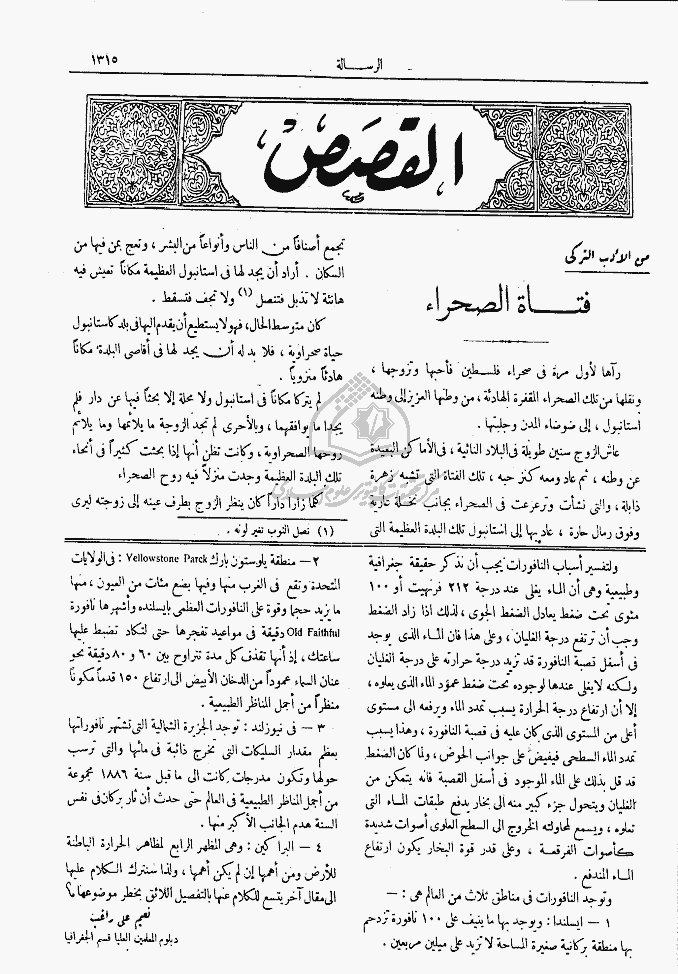 ١٣١٥
الرسالة
القصص
من الأدب التركي
فتاة الصحراء
رآها لأول مرة في صحراء فلسطين فأحبها وتزوجها ،
ونقلها من تلك الصحراء المقفرة الهادئة ، من وطنها العزيز إلى وطنه
استانبول ، إلى ضوضاء المدن وجلبتها .
عاش الزوج سنين طويلة في البلاد النائية ، في الأماكن البعيدة
عن وطنه ، ثم عاد ومعه كنز حبه ، تلك الفتاة التي تشبه زهرة
ذابلة ، والتي نشأت وترعرعت في الصحراء بجانب نخلة عارية
وفوق رمال حارة ، عاد بها إلى استانبول تلك البلدة العظيمة التي
تجمع أصنافاً من الناس وأنواعاً من البشر ، وتعج بمن فيها من
السكان . أراد أن يجد لها في استانبول العظيمة مكاناً تعيش فيه
هانئة لا تذبل فتنصل (١) ولا تجف فتسقط .
كان متوسط الحال ، فهو لا يستطيع أن يقدم اليها في بلد كاستانبول
حياة صحراوية ، فلا بد له أن يجد لها في أقاصي البلدة مكاناً
هادئاً منزوياً .
لم يتركا مكاناً في استانبول ولا محلة إلا بحثا فيها عن دار فلم
يجدا ما يوافقهما ، وبالأحرى لم تجد الزوجة ما يلائمها وما يلائم
روحها الصحراوية ، وكانت تظن أنها إذا بحثت كثيراً في أنحاء
تلك البلدة العظيمة وجدت منزلاً فيه روح الصحراء
كلما زارا داراً كان ينظر الزوج بطرف عينه إلى زوجته ليرى
(١) نصل الثوب تغير لونه .
ولتفسير أسباب النافورات يجب أن نذكر حقيقة جغرافية
وطبيعية وهي أن الماء يغلي عند درجة ٢١٢ فرنهيت أو ١٠٠
مئوي تحت ضغط يعادل الضغط الجوي ، لذلك اذا زاد الضغط
وجب أن ترتفع درجة الغليان ، وعلى هذا فان الماء الذي يوجد
في أسفل قصبة النافورة قد تزيد درجة حرارته على درجة الغليان
ولكنه لا يغلي عندها لوجوده تحت ضغط عمود الماء الذي يعلوه ،
إلا أن ارتفاع درجة الحرارة يسبب تمدد الماء ويرفعه الى مستوى
أعلى من المستوى الذي كان عليه في قصبة النافورة ، وهذا يسبب
تمدد الماء السطحي فيفيض على جوانب الحوض ، ولما كان الضغط
قد قل بذلك على الماء الموجود في أسفل القصبة فانه يتمكن من
الغليان ويتحول جزء كبير منه الى بخار يدفع طبقات الماء التي
تعلوه ، ويسمع لمحاولته الخروج الى السطح العلوي أصوات شديدة
كأصوات الفرقعة ، وعلى قدر قوة البخار يكون ارتفاع
الماء المندفع .
وتوجد النافورات في مناطق ثلاث من العالم هي : —
١ — ايسلندا : ويوجد بها ما ينيف على ١٠٠ نافورة تزدحم
بها منطقة بركانية صغيرة المساحة لا تزيد على ميلين مربعين .
٢ — منطقة يلوستون بارك Yellowstone Parck : في الولايات
المتحدة وتقع في الغرب منها وفيها بضع مئات من العيون ، منها
ما يزيد حجما وقوة على النافورات العظمى بايسلنده وأشهرها نافورة
Old Faithful دقيقة في مواعيد تفجرها حتى لتكاد تضبط عليها
ساعتك ، إذ أنها تقذف كل مدة تتراوح بين ٦٠ و ٨٠ دقيقة نحو
عنان السماء عموداً من الدخان الأبيض الى ارتفاع ١٥٠ قدماً مكوناً
منظراً من أجمل المناظر الطبيعية .
٣ — في نيوزلند : توجد الجزيرة الشمالية التي تشتهر نافوراتها
بعظم مقدار السليكات التي تخرج ذائبة في مائها والتي ترسب
حولها وتكون مدرجات كانت الى ما قبل سنة ١٨٨٦ مجموعة
من أجمل المناظر الطبيعية في العالم حتى حدث أن ثار بركان في نفس
السنة هدم الجانب الأكبر منها .
٤ — البراكين : وهي المظهر الرابع لمظاهر الحرارة الباطنة
للأرض ومن أهمها إن لم يكن أهمها ، ولذا سنترك الكلام عليها
الى مقال آخر يتسع للكلام عنها بالتفصيل اللائق بخطر موضوعها م
نعيم علي راغب
دبلوم المعلمين العليا قسم الجغرافيا